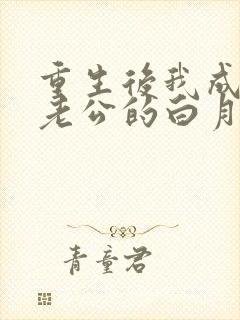 重生後我成
老公的白月
青童君